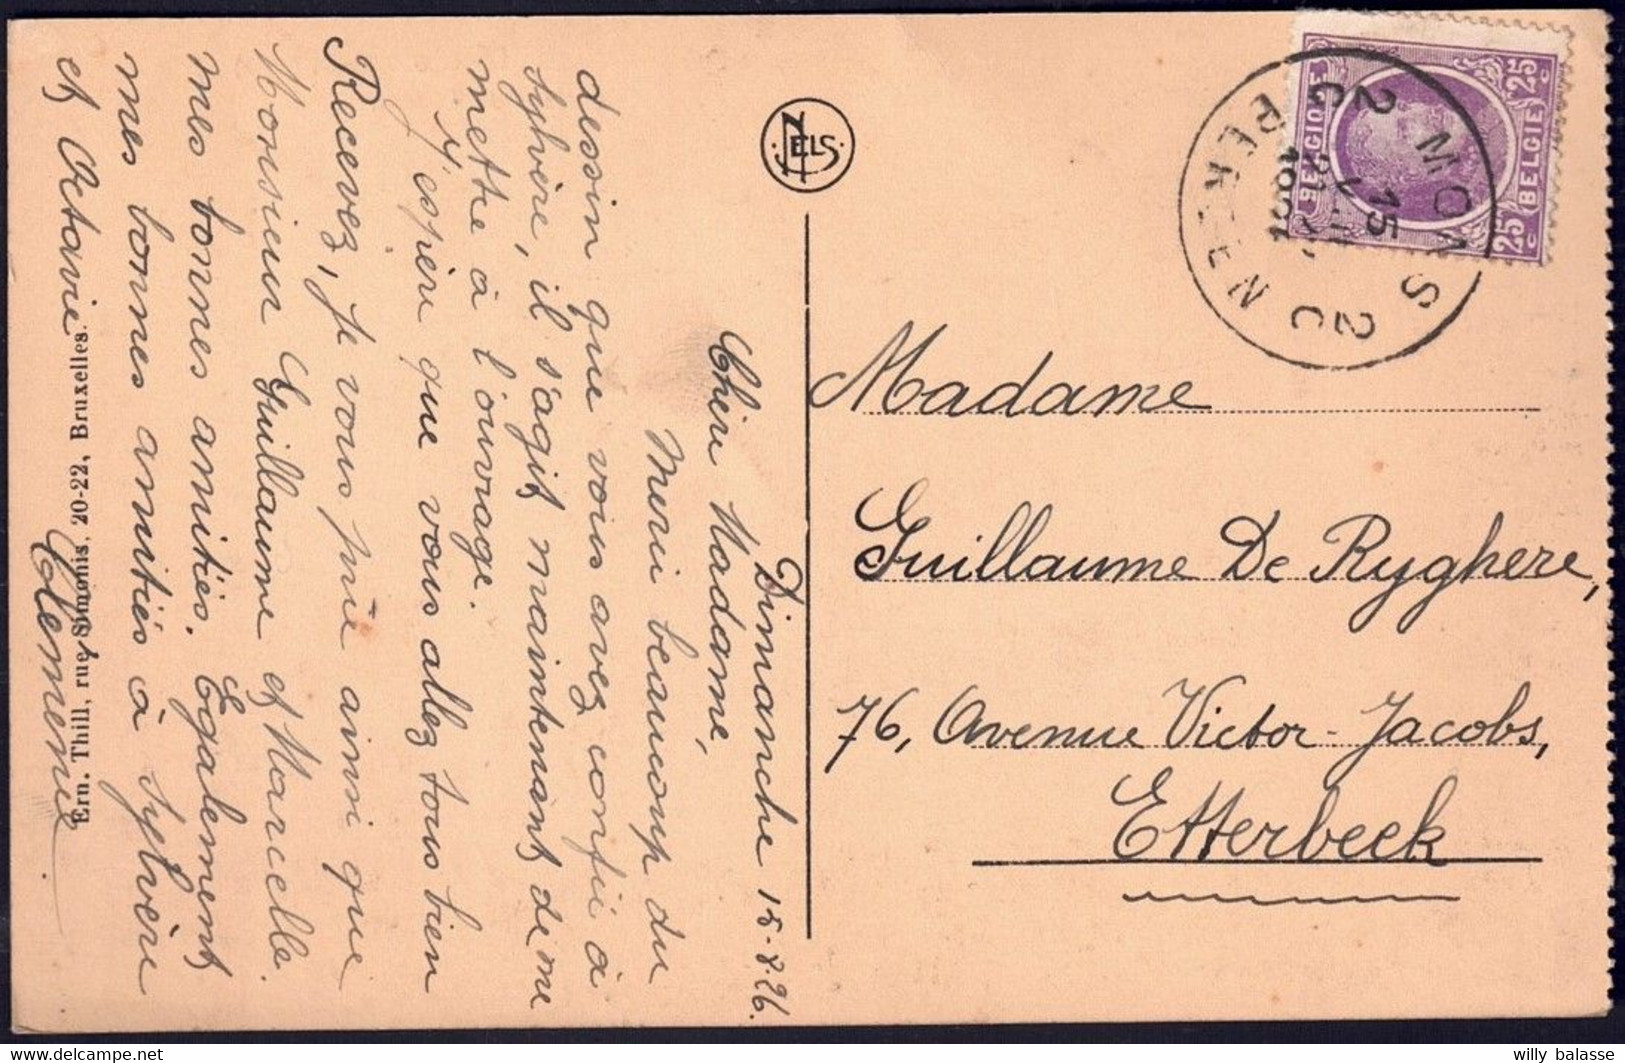 Dimanche 15-8-26.
Chère Madame,
Merci beaucoup du
dessin que vous avez confié à
Sylvère, il s'agit maintenant de me
mettre à l'ouvrage.
J'espère que vous allez tous bien
Recevez, je vous prie ainsi que
Monsieur Guillaume et Marcelle.
mes bonnes amitiés. Egalement
mes bonnes amitiés à Sylvère
et Octavie.
Clémence.
Ern. Thill, rue Simonis, 20-22, Bruxelles.
NELS
BELGIQUE
BELGIË
25c
25c
MONS
BERGEN
2C
2C
15
1926
Madame
Guillaume De Ryghere,
76, Avenue Victor-Jacobs,
Etterbeek
willy balasse